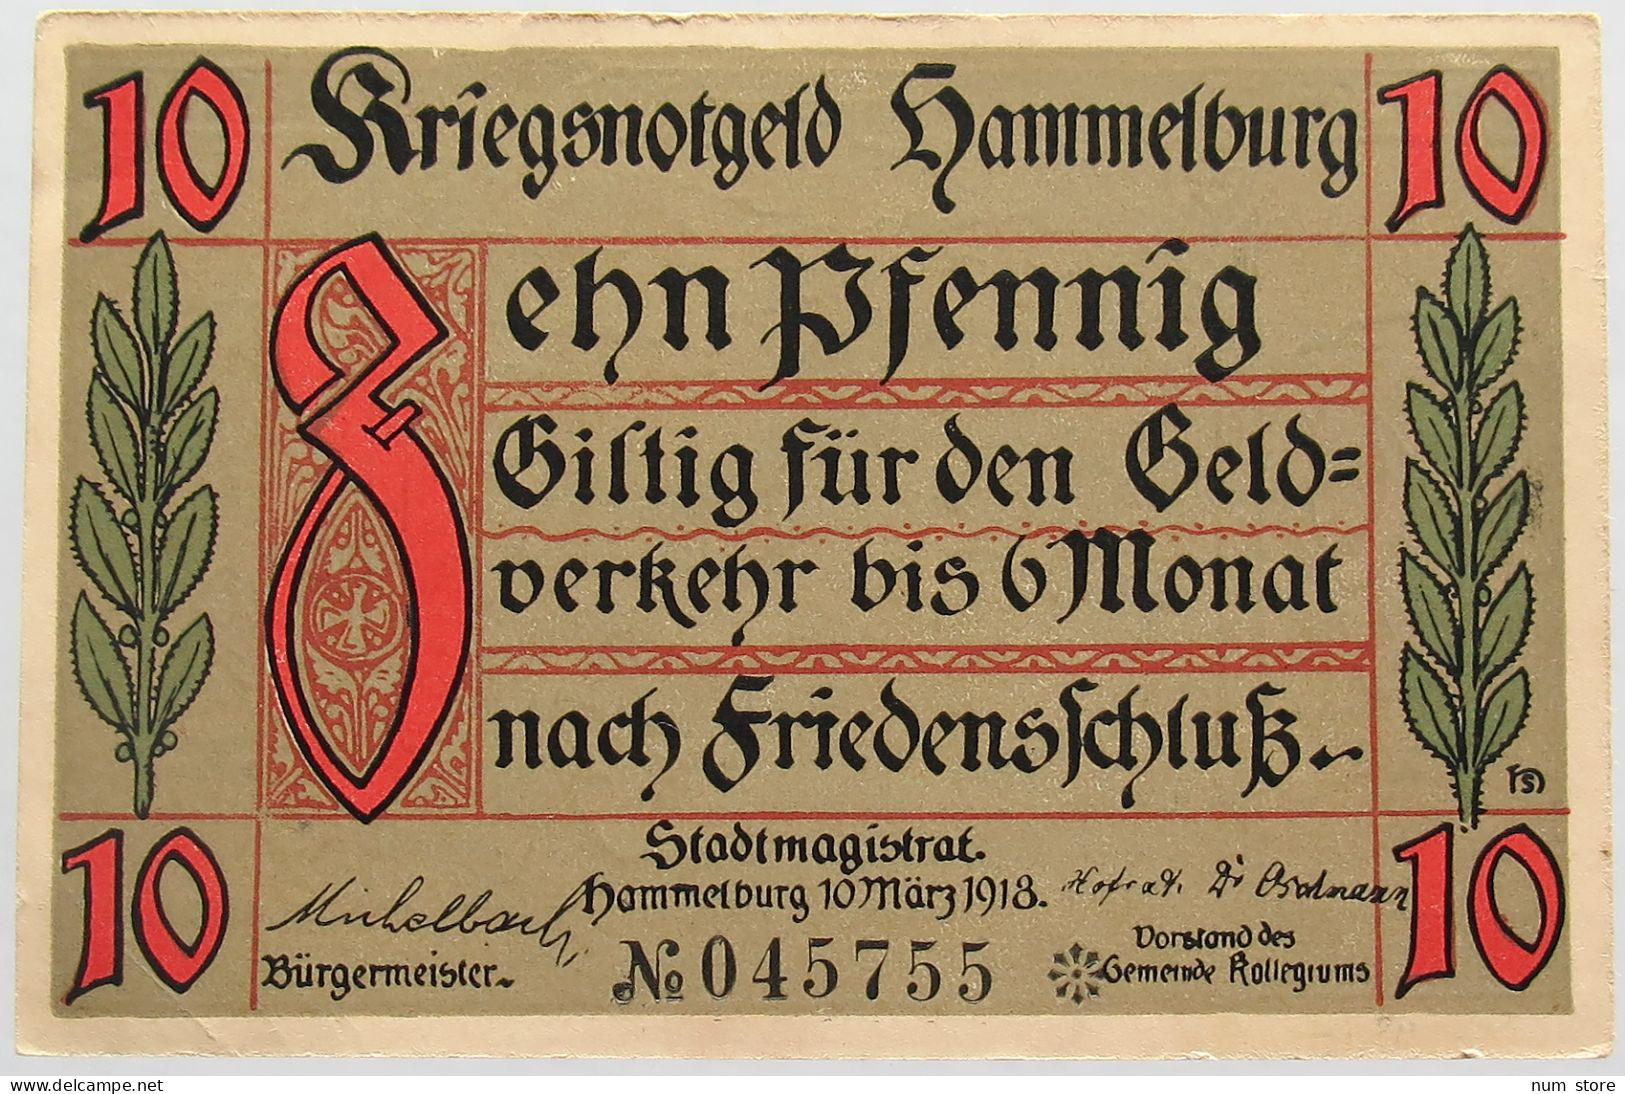 10 Kriegsnotgeld Hammelburg 10
Zehn Pfennig
Giltig für den Geld=
verkehr bis 6 Monat
nach Friedensschluß.
10 Stadtmagistrat. 10
Hammelburg 10 März 1918.
Michelbach Hofrat. Dr
Bürgermeister.
Vorstand des
Gemeinde Kollegiums
No 045755
delcampe.net
num store